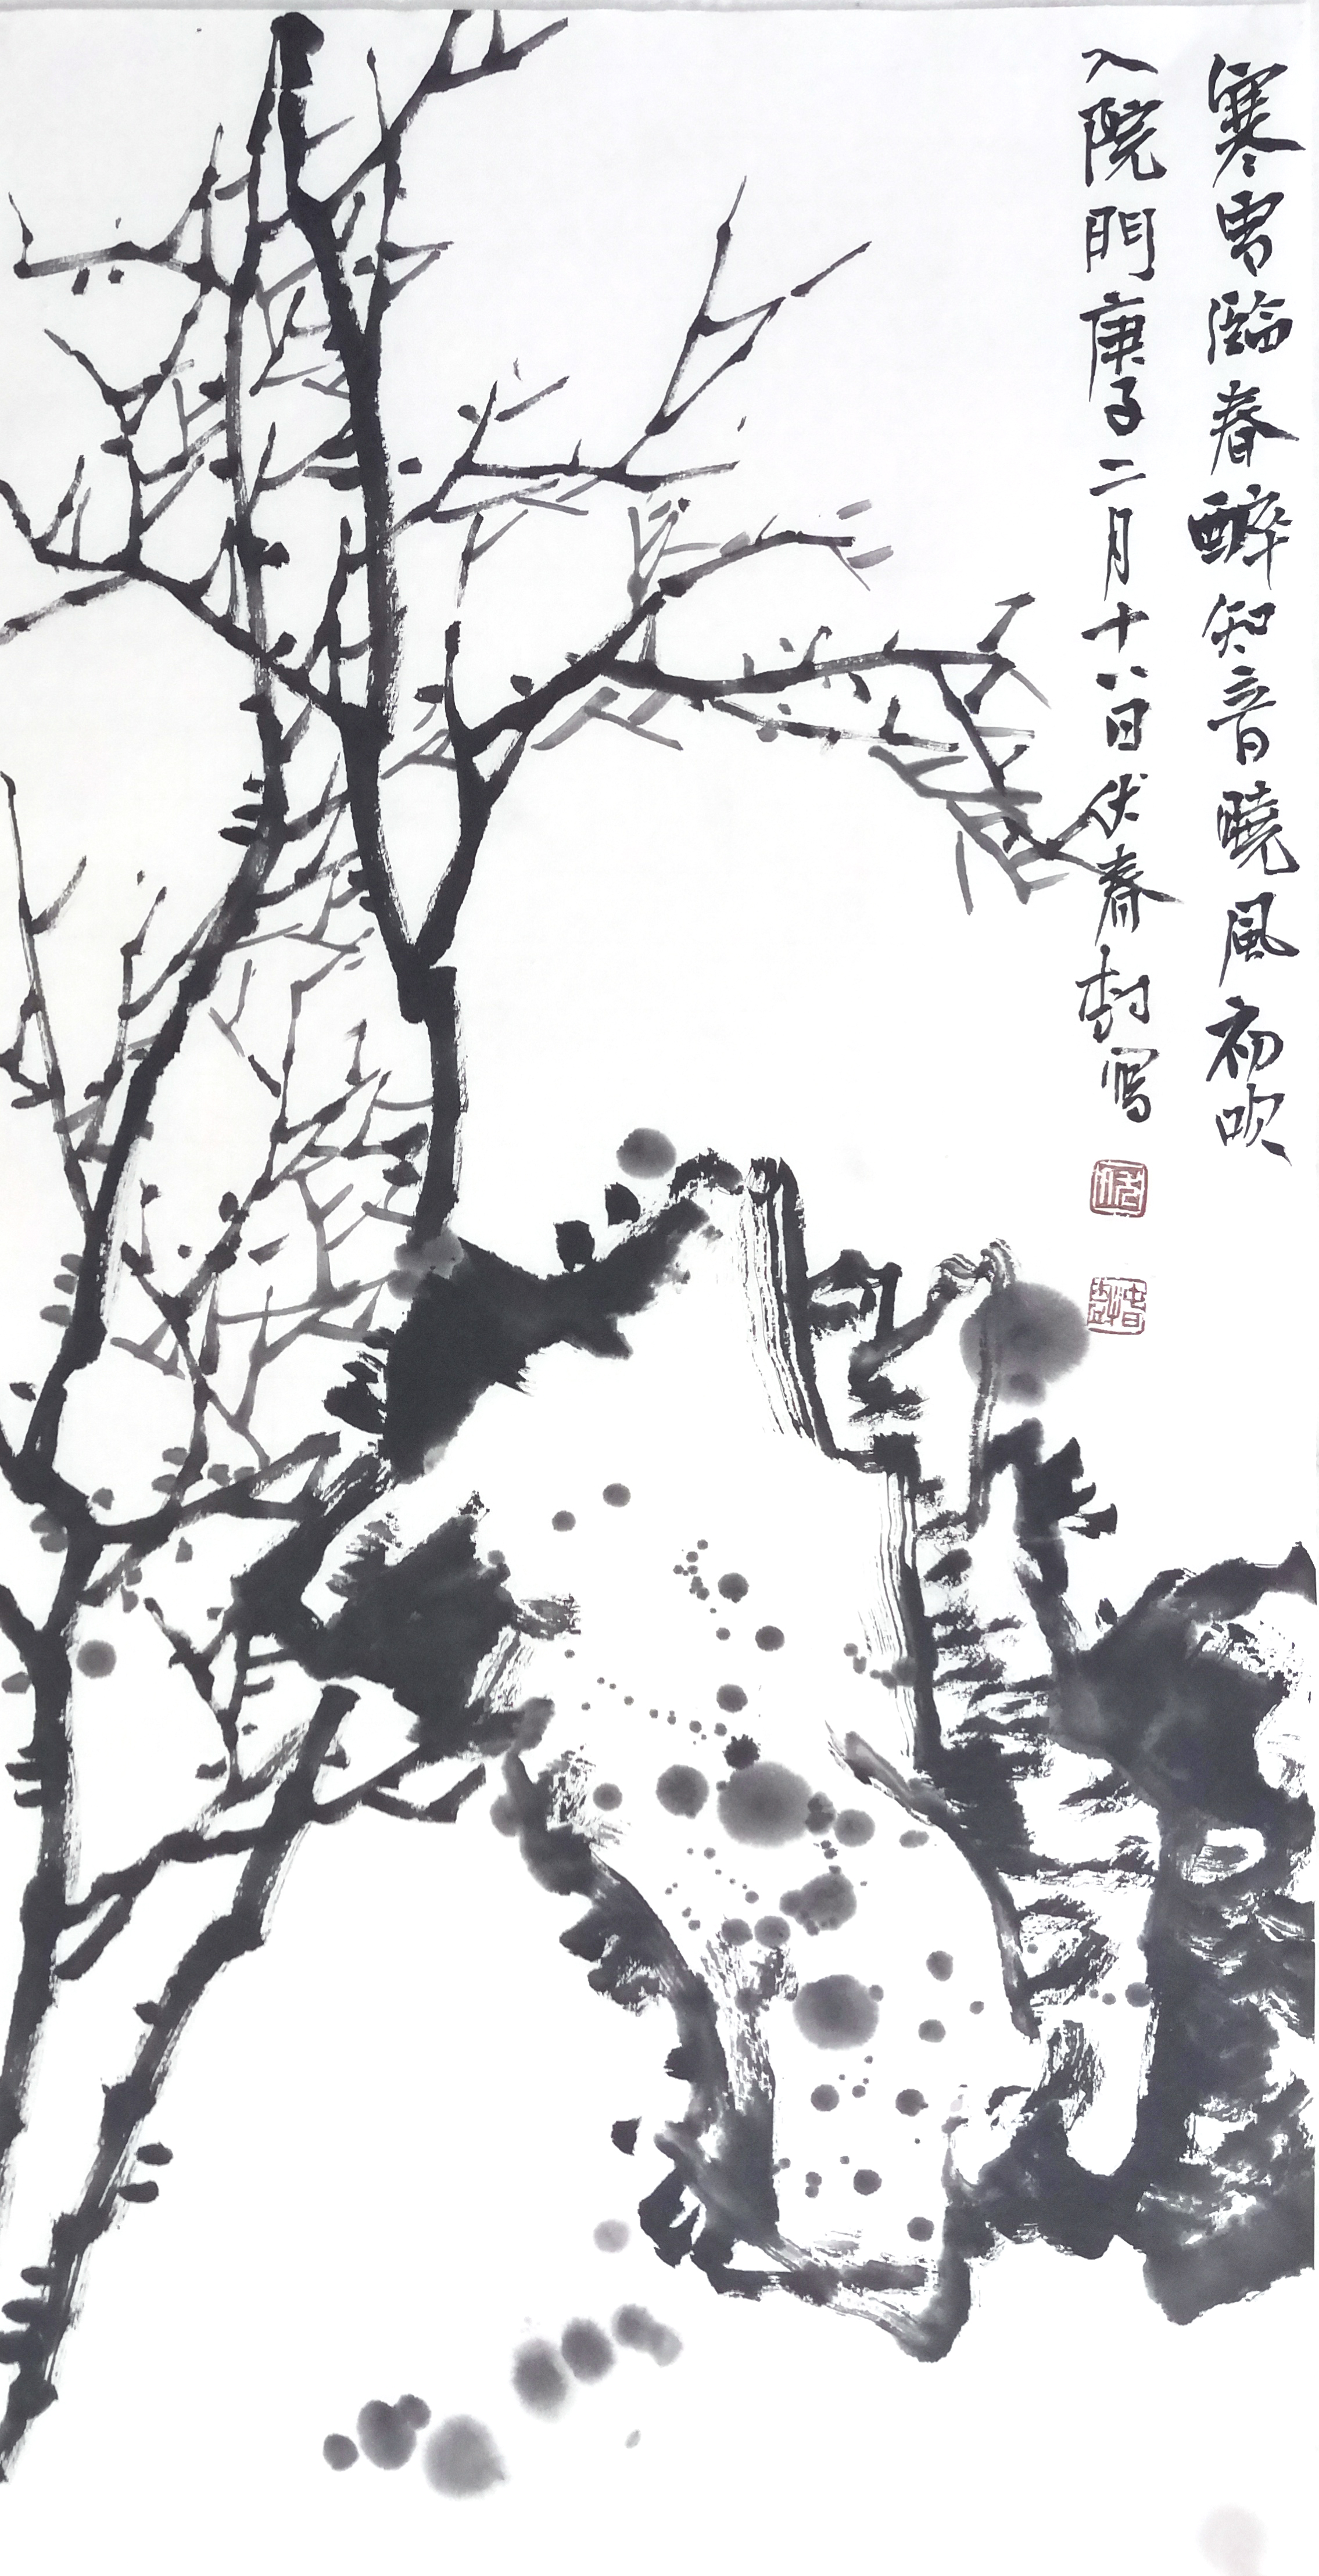 寒雪臨春醉知音曉風初吹
入院門庚子二月十八日伏春樹寫